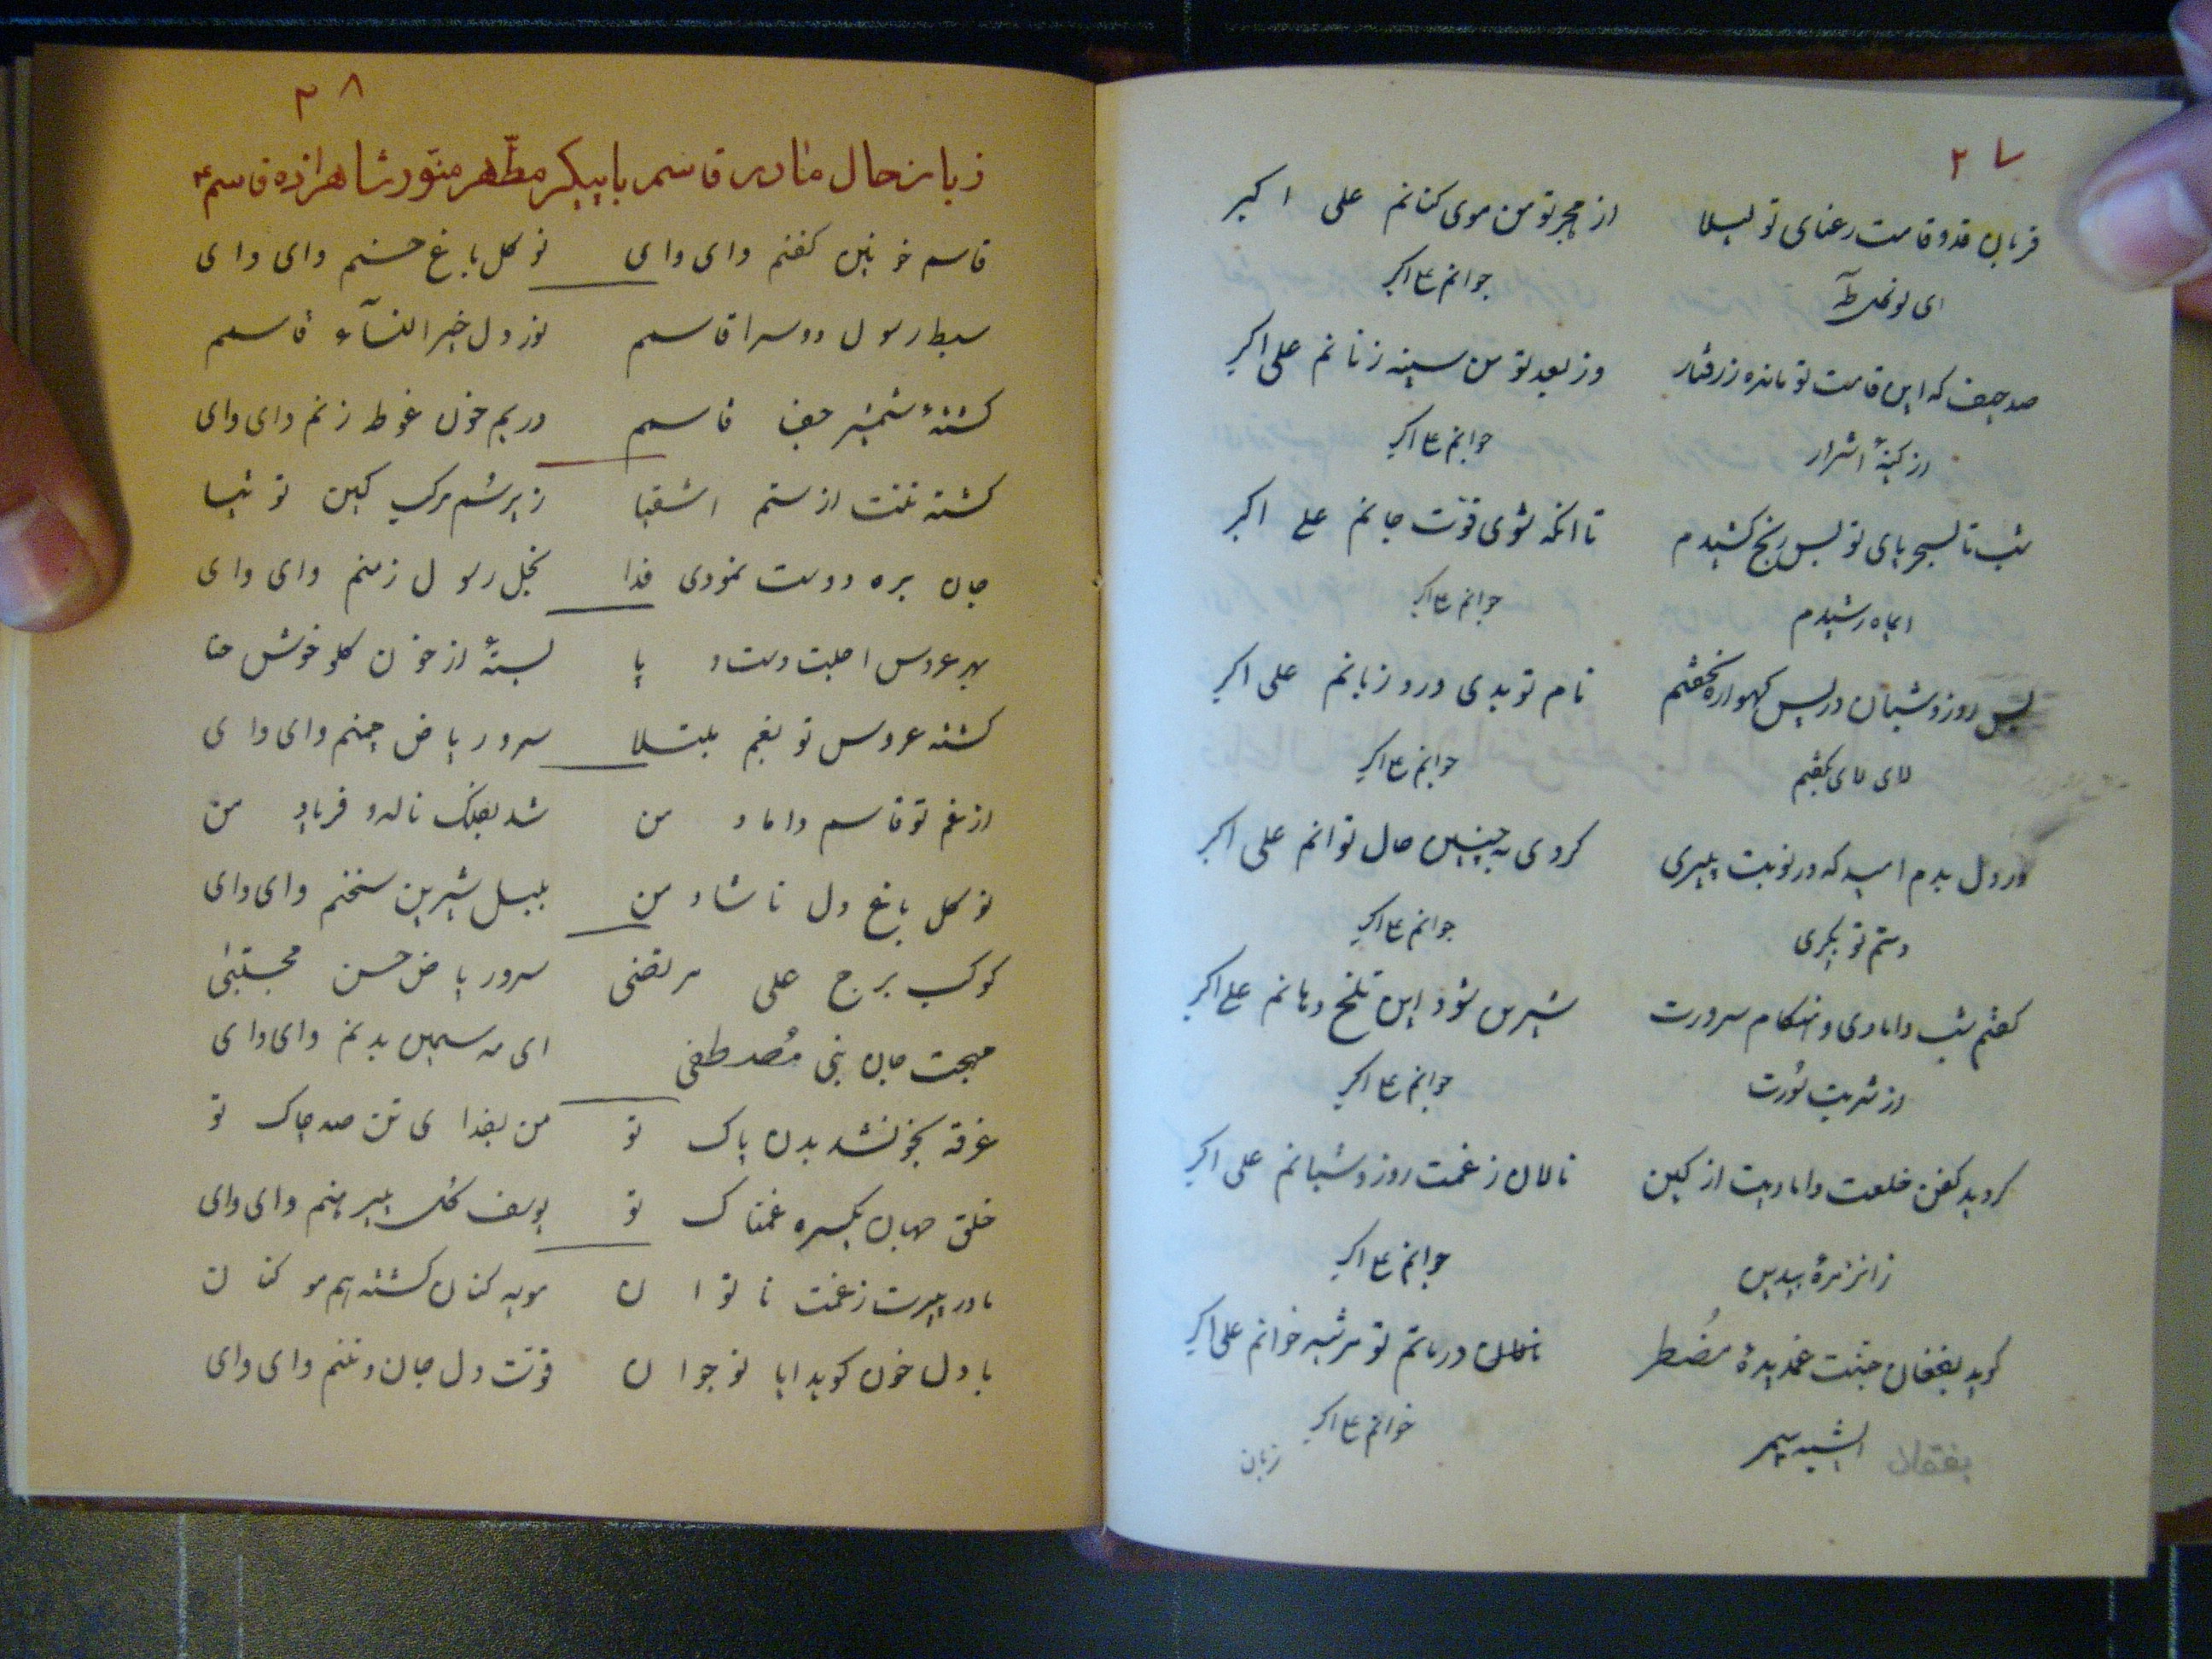 ۲۷
قربان قد و قامت رعنای تو لیلا از هجر تو من موی کنانم علی اکبر
ای نونهال طه جوانم ع اکبر
صد حیف که این قامت تو مانده ز رفتار وز بعد تو من سینه زنانم علی اکبر
از کینهٔ اشرار جوانم ع اکبر
شب تا بسحر پای تو بس رنج کشیدم تا انکه شوی قوّت جانم علی اکبر
ایماه رشیدم جوانم ع اکبر
بس روز و شبان در پس گهواره نخفتم نام تو بدی ورد زبانم علی اکبر
لای لای بگفتم جوانم ع اکبر
در دل بدم امید که در نوبت پیری کردی به چنین حال توانم علی اکبر
دستم تو بگیری جوانم ع اکبر
گفتم شب دامادی و هنگام سرورت شیرین شود این تلخ دهانم علی اکبر
از شربت شورت جوانم ع اکبر
گردید کفن خلعت دامادیت از کین نالان ز غمت روز و شبانم علی اکبر
زانزمرهٔ بیدین جوانم ع اکبر
گوید بفغان جنّت غمدیدهٔ مضُطر نالان در ماتم تو مرثیه خوانم علی اکبر
الشبیه پیمبر خوانم ع اکبر
بفغان
زبان
۲۸
زبانحال مادر قاسم با پیکر مطّهر منوّر شاهزاده قاسم ع
قاسم خونین کفنم وای وای نو گل باغ حسنم وای وای
سبط رسول دوسرا قاسم نور دل خیر النسآء قاسم
کشتهٔ شمشیر جفا قاسم در یم خون غوطه زنم وای وای
کشته تنت از ستم اشقیا زیر سُم مرکب کین توتیا
جان بره دوست نمودی فدا نجل رسول زمنم وای وای
بهر عروس اصلبت دست و پا بستهٔ از خون گلو خوش حنا
گشته عروس تو بغم مبتلا سرو ریاض چمنم وای وای
از غم تو قاسم داماد من شد بفلک ناله و فریاد من
نو گل باغ دل ناشاد من بلبل شیرین سخنم وای وای
کوکب برج علی مرتضی سرو ریاض حسن مجتبیٰ
مهجت جان نبی مُصطفی ای مه سیمین بدنم وای وای
غرقه بخونشد بدن پاک تو من بفدای تن صد چاک تو
خلق جهان یکسره غمناک تو یوسف گل پیرهنم وای وای
مادر پیرت ز غمت ناتوان مویه کنان گشته یم مو کنان
با دل خون گوید ایا نوجوان قوّت دل جان و تنم وای وای